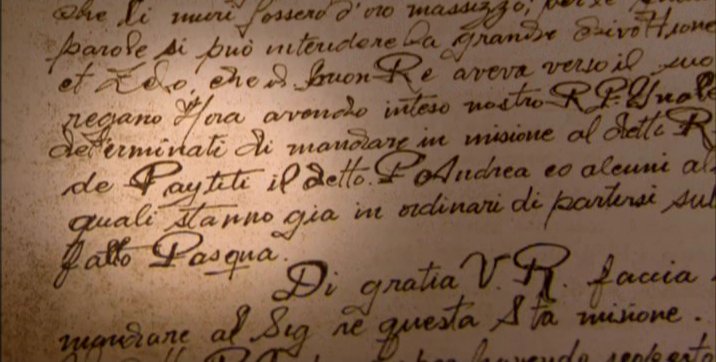 che li muri fossero d'oro massizzo;
parole si può intendere la grande divottione
et Zelo, che il buon Re aveva verso il suo
regano Hora avendo inteso nostro R P.
determinati di mandare in misione al detto R
de Paytiti il detto. P Andrea co alcuni al
quali stanno gia in ordinari di partersi sul
fatto Pasqua.
Di gratia V. R. faccia
mandare al Sig re questa Sta misione.